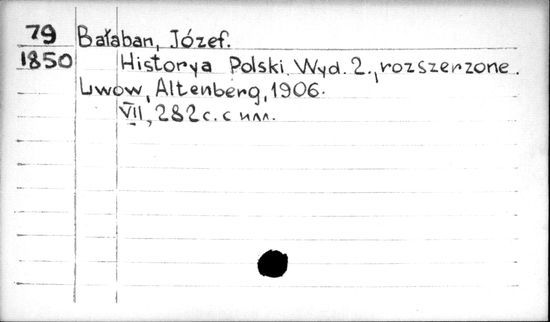 79 Bałaban, Józef.
1850 Historya Polski. Wyd. 2., rozszerzone.
Lwow, Altenberg, 1906.
VII, 282 с. с илл.